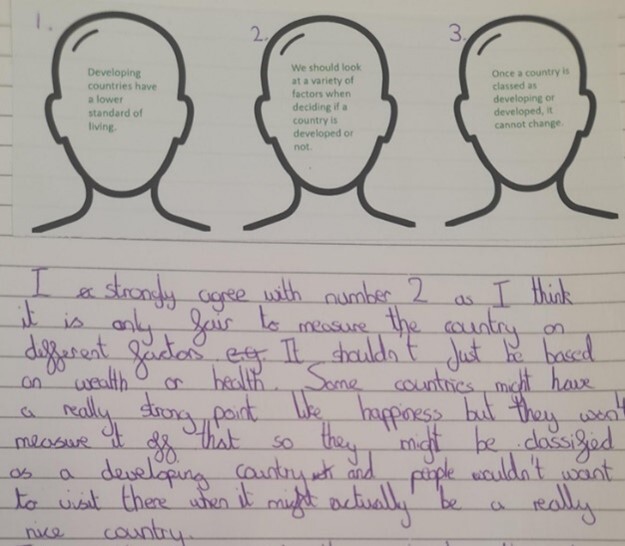 1.
Developing
countries have
a lower
standard of
living.
2.
We should look
at a variety of
factors when
deciding if a
country is
developed or
not.
3.
Once a country is
classed as
developing or
developed, it
cannot change.
I strongly agree with number 2 as I think
it is only fair to measure the country on
different factors It shouldn't just be based
on wealth or health. Some countries might have
a really strong point like happiness but they won't
measure it off that so they might be classified
as a developing country and people wouldn't want
to visit there when it might actually be a really
nice country.